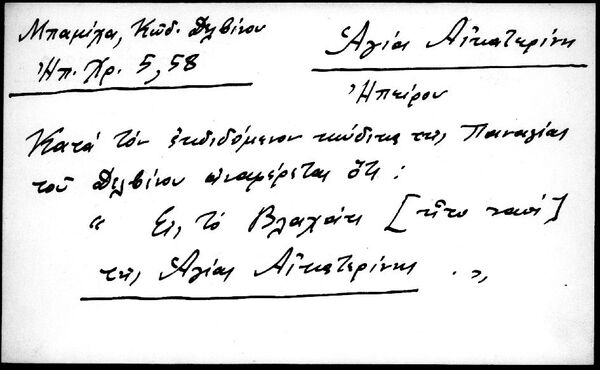 Μπαμίχα, Κῶδ. Δελβίνου
Ἠπ. Χρ. 5, 58
Ἁγίας Αἰκατερίνης
Ἠπείρου
Κατά τόν ἐκδιδόμενον κώδικα τῆς Παναγίας
τοῦ Δελβίνου ἀναφέρεται ὅτι:
" Εἰς τό Βλαχάτι [ἦτο ναός]
τῆς Ἁγίας Αἰκατερίνης . "